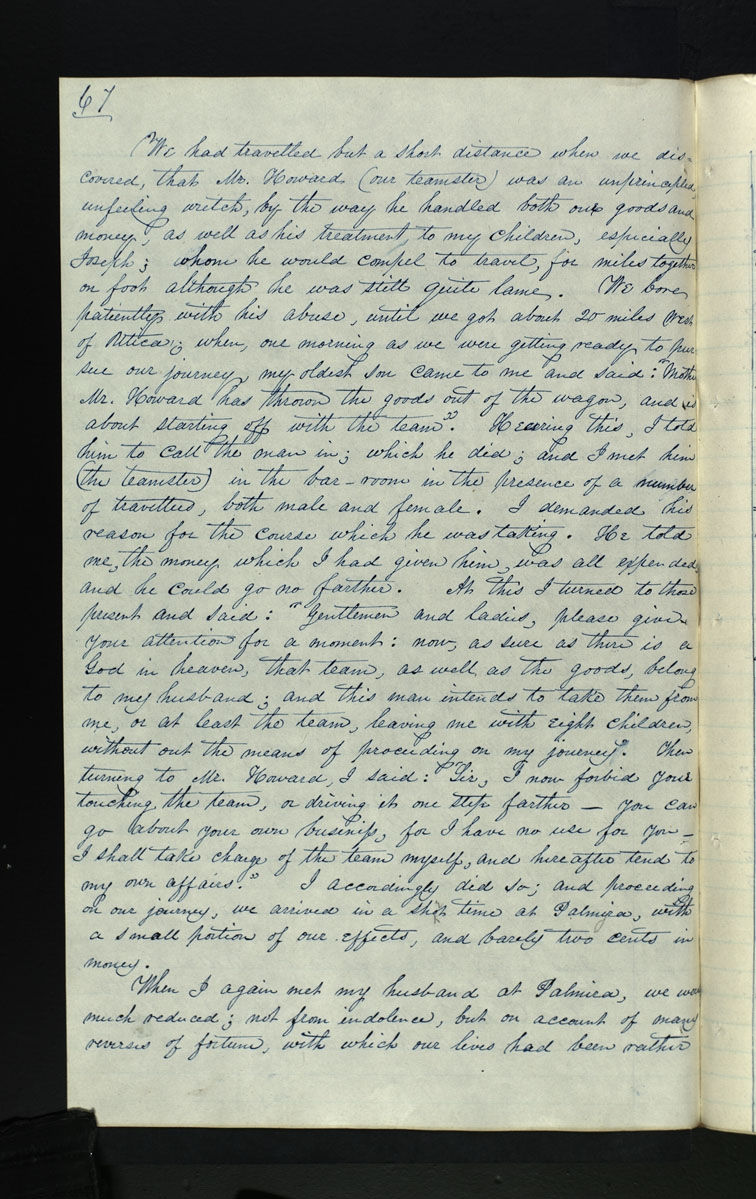 67
We had travelled but a short distance when we dis-
covered, that Mr. Howard (our teamster) was an unprincipled,
unfeeling wretch, by the way he handled both our goods and
money, as well as his treatment, to my children, especially
Joseph; whom he would compel to travel, for miles together
on foot although he was still quite lame. We bore
patiently with his abuse, until we got about 20 miles west
of Utica; when, one morning as we were getting ready to pur-
sue our journey, my oldest son came to me and said: "Mother
Mr. Howard has thrown the goods out of the wagon, and is
about starting off with the team". Hearing this, I told
him to call the man in; which he did; and I met him
(the teamster) in the bar-room in the presence of a number
of travellers, both male and female. I demanded his
reason for the course which he was taking. He told
me, the money which I had given him, was all expended,
and he could go no farther. At this I turned to those
present and said: "Gentlemen and ladies, please give
your attention for a moment: now, as sure as there is a
God in heaven, that team, as well as the goods, belong
to my husband; and this man intends to take them from
me, or at least the team, leaving me with eight children,
without out the means of proceeding on my journey". Then
turning to Mr. Howard, I said: "Sir, I now forbid your
touching the team, or driving it one step farther — you can
go about your own business, for I have no use for you —
I shall take charge of the team myself, and hereafter tend to
my own affairs." I accordingly did so; and proceeding
on our journey, we arrived in a short time at Palmira, with
a small portion of our effects, and barely two cents in
money.
When I again met my husband at Palmira, we were
much reduced; not from indolence, but on account of many
reverses of fortune, with which our lives had been rather